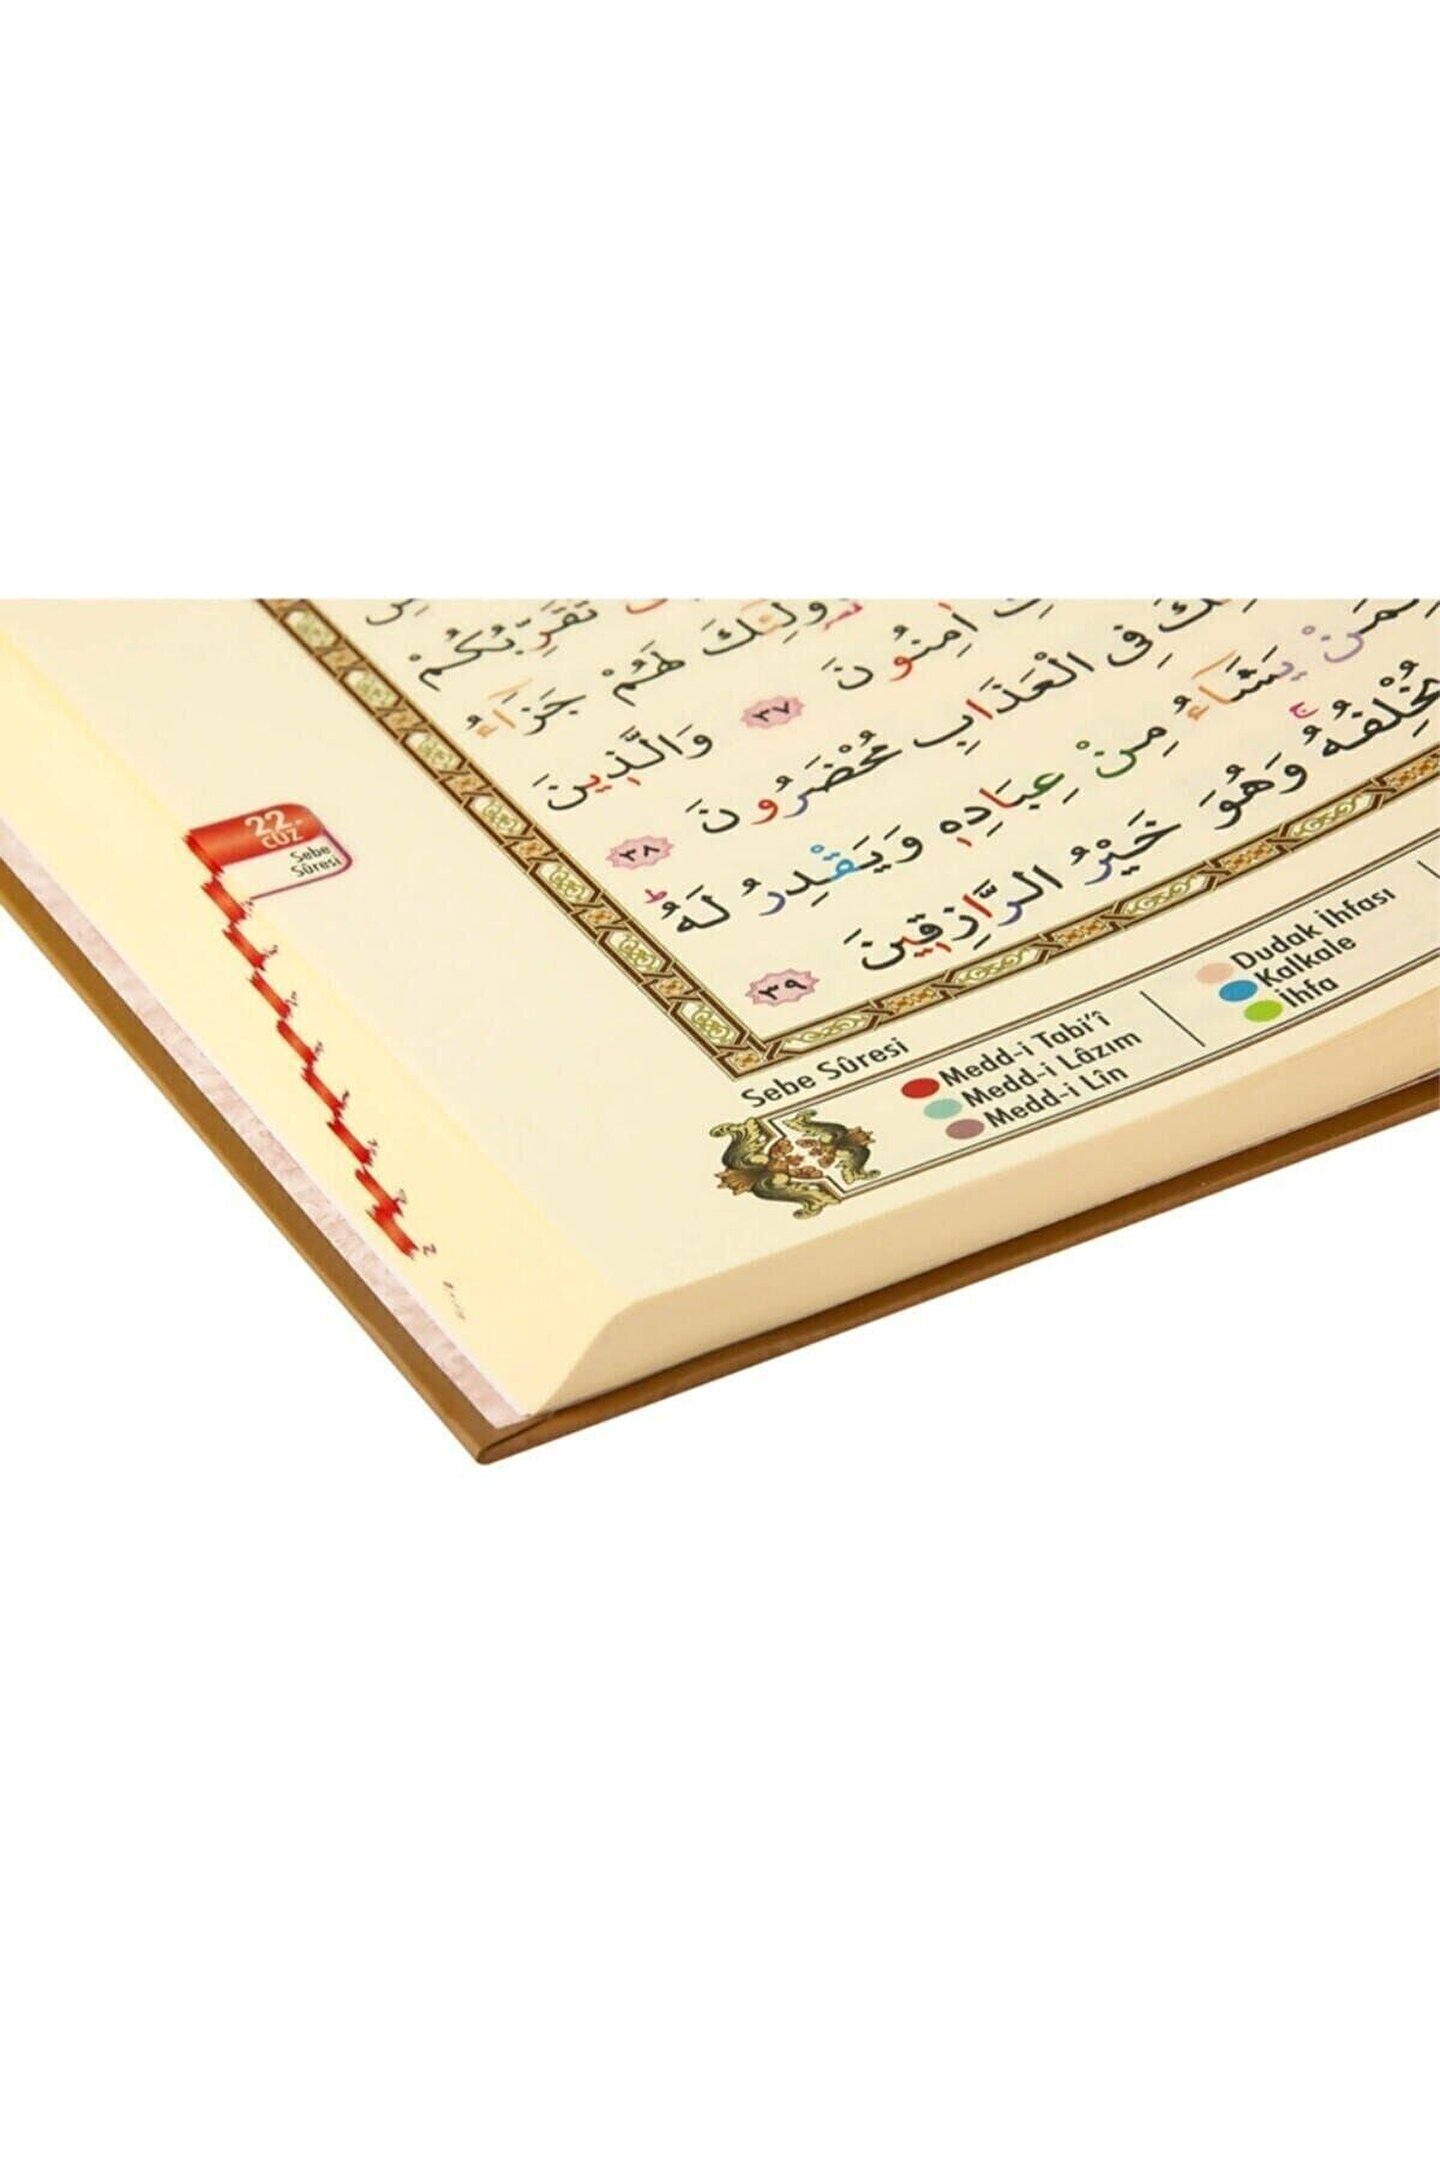 تُقَرِّبُكُمْ
لَهُمْ جَزَٓاءُ
اٰمِنُونَ ﴿٣٧﴾ وَالَّذ۪ينَ
فِي الْعَذَابِ مُحْضَرُونَ ﴿٣٨﴾
يَشَٓاءُ مِنْ عِبَادِه۪ وَيَقْدِرُ لَهُۜ
يُخْلِفُهُۚ وَهُوَ خَيْرُ الرَّازِق۪ينَ ﴿٣٩﴾
22. CÜZ
Sebe
Sûresi
Sebe Sûresi
Medd-i Tabi’î
Medd-i Lâzım
Medd-i Lîn
Dudak İhfası
Kalkale
İhfa